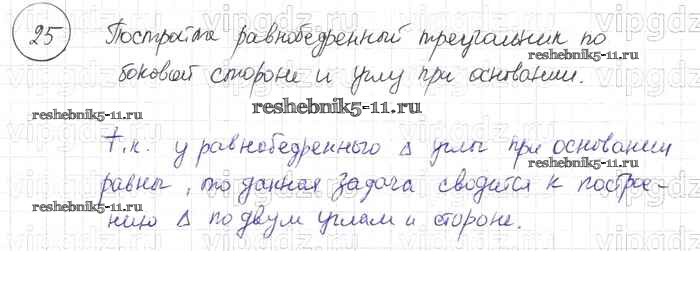 25 Постройте равнобедренный треугольник по
боковой стороне и углу при основании.
reshebnik5-11.ru
reshebnik5-11.ru
Т.к. у равнобедренного Δ углы при основании
reshebnik5-11.ru
равны, то данная задача сводится к построе-
reshebnik5-11.ru
reshebnik5-11.ru
нию Δ по двум углам и стороне.
vipgdz.ru